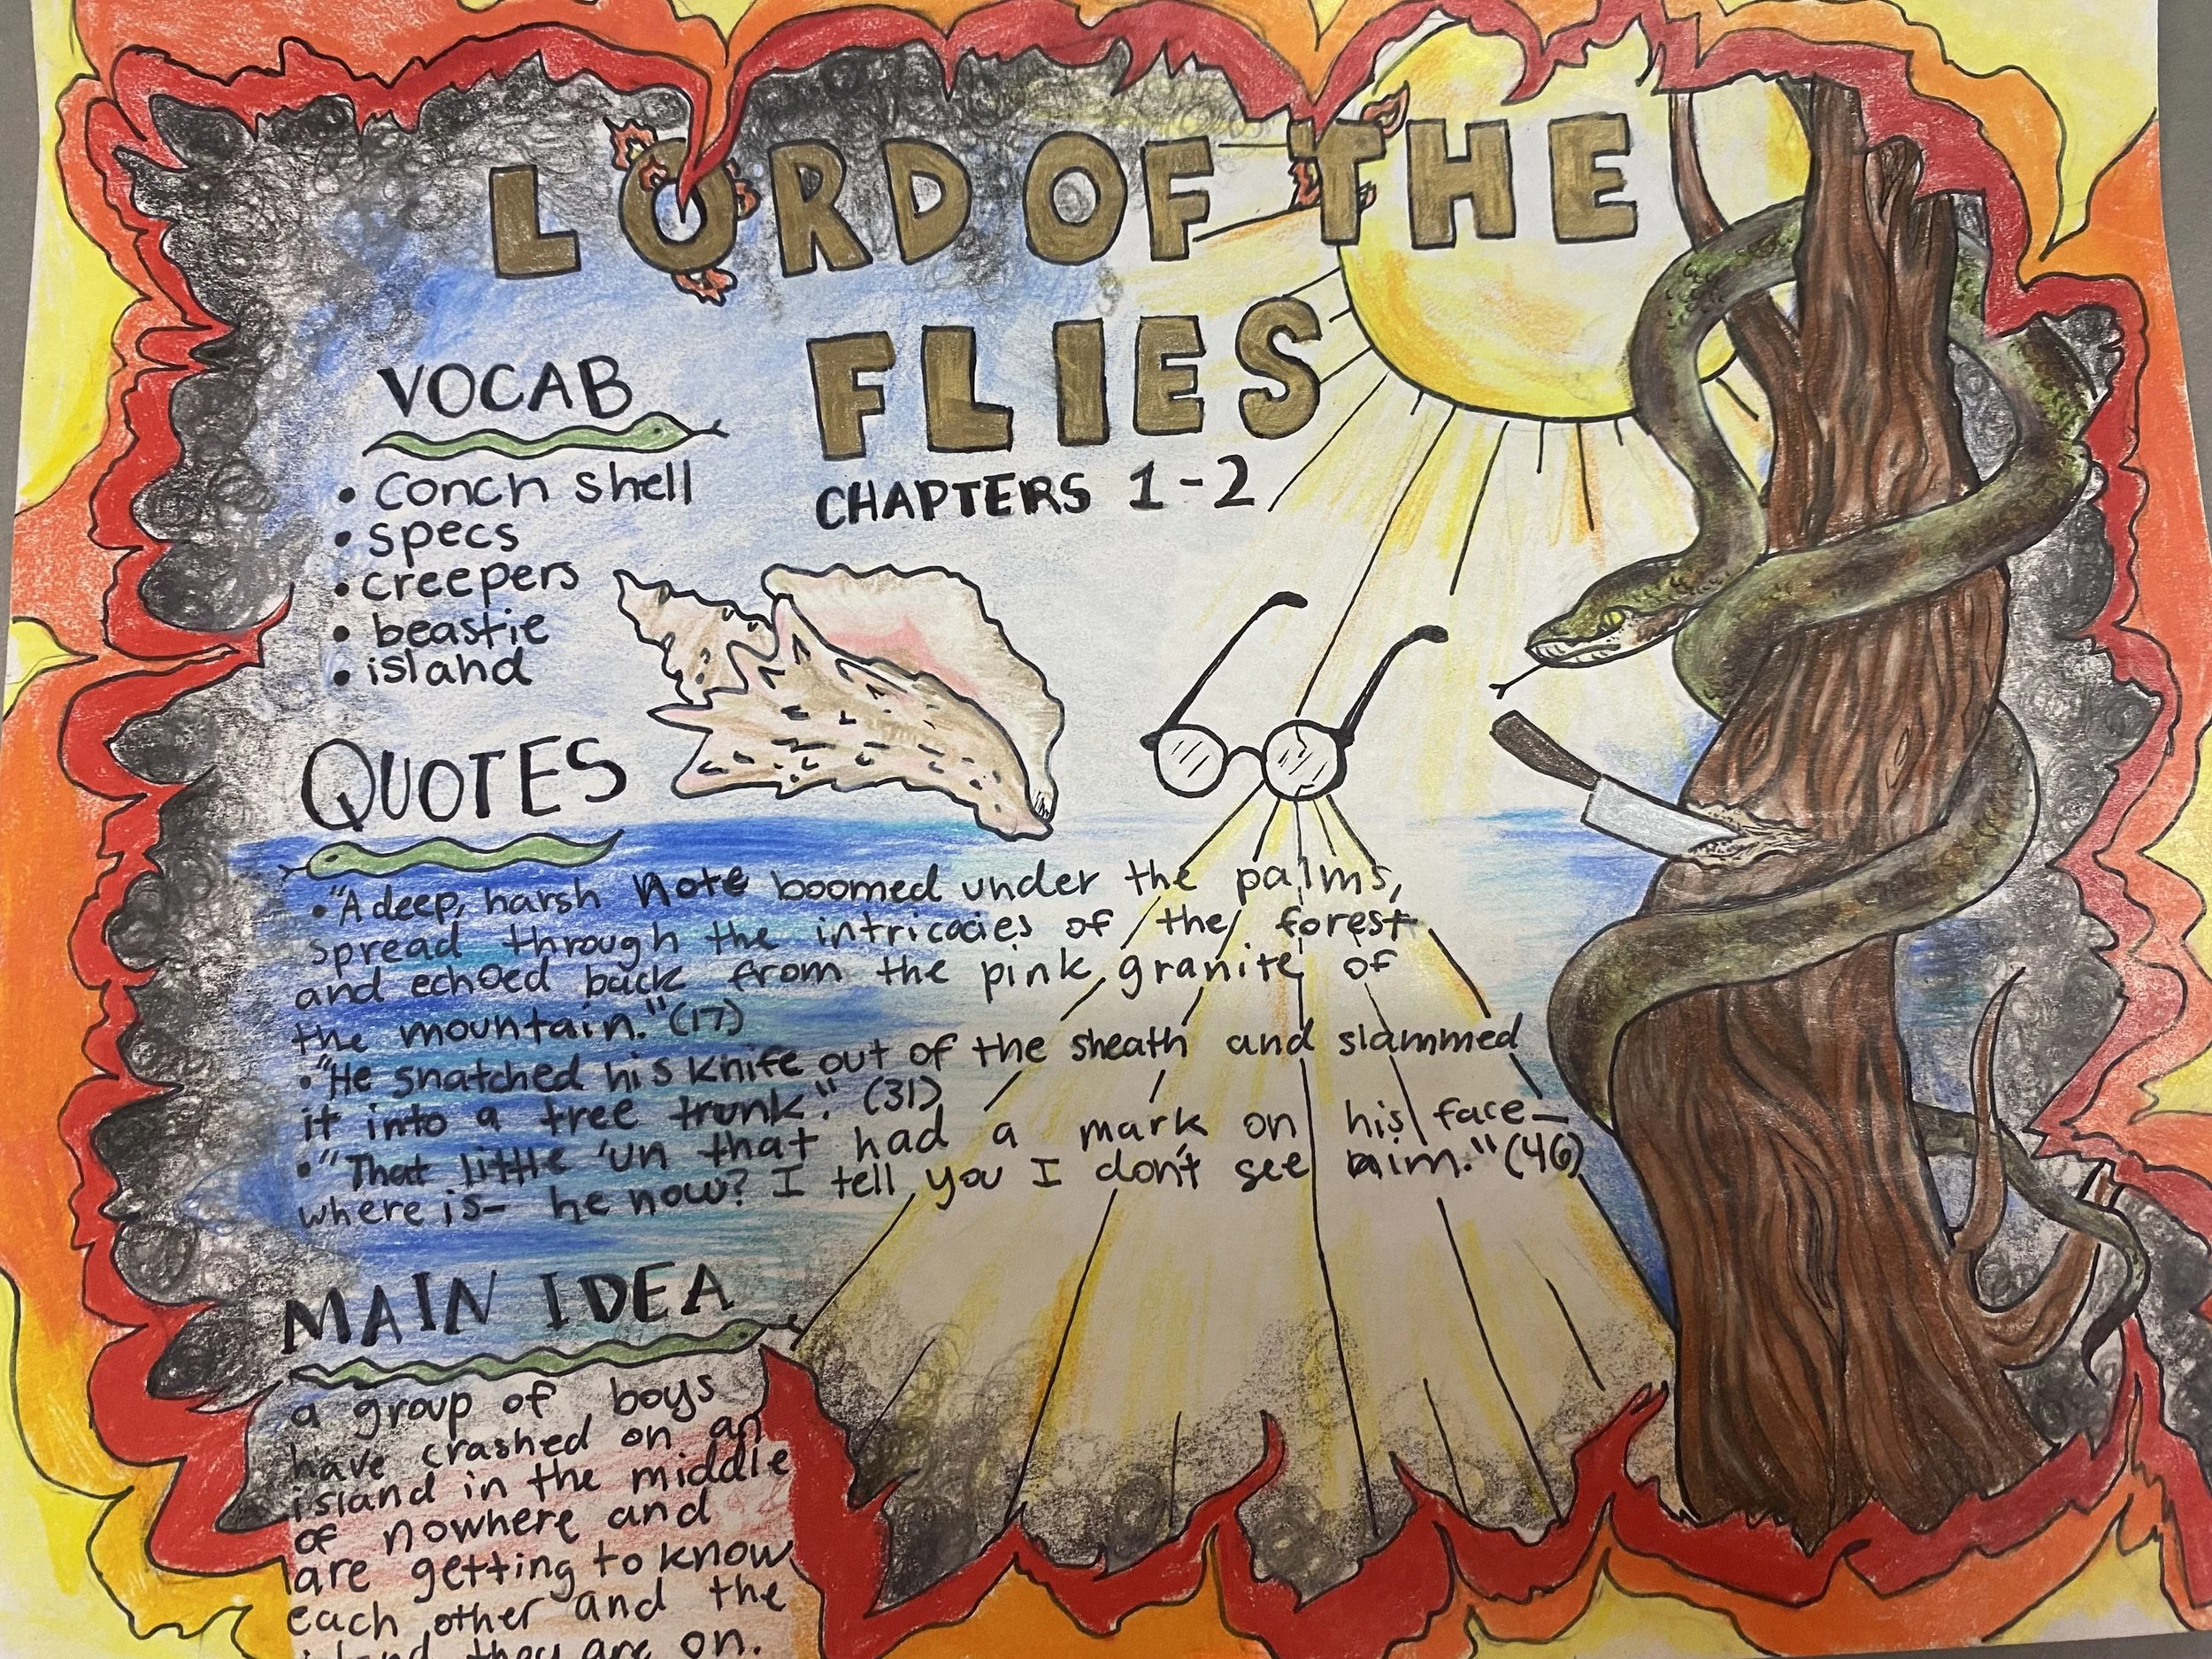 LORD OF THE
FLIES
CHAPTERS 1-2
VOCAB
• conch shell
• specs
• creepers
• beastie
• island
QUOTES
• "A deep, harsh note boomed under the palms,
spread through the intricacies of the forest
and echoed back from the pink granite of
the mountain." (17)
• "He snatched his knife out of the sheath and slammed
it into a tree trunk". (31)
• "That little 'un that had a mark on his face—
where is— he now? I tell you I don't see him." (46)
MAIN IDEA
a group of boys
have crashed on an
island in the middle
of nowhere and
are getting to know
each other and the
island they are on.